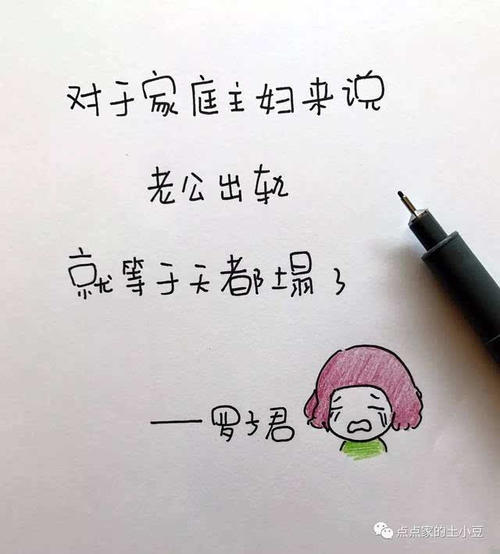 对于家庭主妇来说
老公出轨
就等于天都塌了
——罗子君
点点家的土小豆